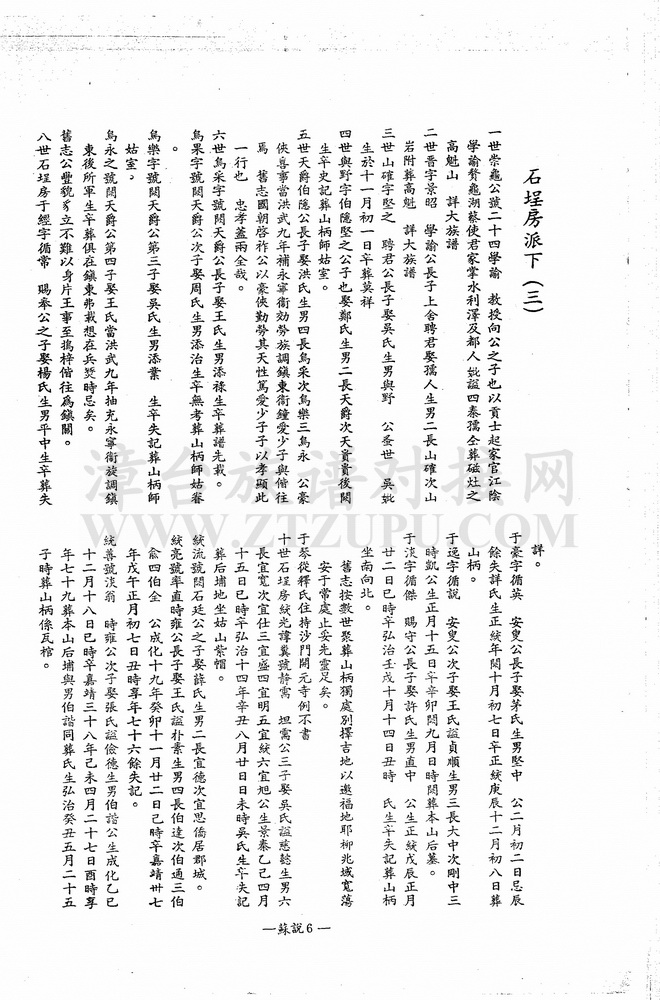 石埕房派下(三)
一世崇龜公號二十四學諭 教授向公之子也以貢士起家官江陰
學諭贅龜湖蔡使君家掌水利澤及都人妣謚四泰孺仝葬磁灶之
高魁山 詳大族譜
二世晋字景昭 學諭公長子上舍聘君娶孺人生男二長山確次山
岩附葬高魁 詳大族譜
三世山確字堅之 聘君公長子娶吳氏生男與野 公蚤世 吳妣
生於十一月初一日卒葬莫祥
四世與野字伯隱堅之公子也娶鄭氏生男二長天爵次天貴貴後闕
生卒史記葬山柄師姑室。
五世天爵伯隱公長子娶洪氏生男四長烏采次烏樂三烏永 公豪
俠喜事當洪武九年補永寧衛効勞族調鎮東衛鐘愛少子與偕往
焉 舊志國朝啓祚公以豪俠勤勞其天性篤愛少子子以孝顯此
一行也 忠孝蓋兩全哉。
六世烏采字號闕天爵公長子娶王氏生男添祿生卒葬譜先載。
烏果字號闕天爵公次子娶周氏生男添治生卒無考葬山柄師姑眷
。
烏樂字號闕天爵公第三子娶吳氏生男添業 生卒失記葬山柄師
姑室,
烏永之號闕天爵公第四子娶王氏當洪武九年抽充永寧衛旋調鎮
東後所軍生卒葬俱在鎮東弗載想在兵燹時忌矣。
舊志公豐貌豸立不難以身片王事至搗梓偕往為鎮關。
八世石埕房于經字循常 賜奉公之子娶楊氏生男平中生卒葬失
詳。
于豪字循英 安叟公長子娶茅氏生男堅中 公二月初二日忌辰
餘失詳氏生正統年閏十月初七日卒正統庚辰十二月初八日葬
山柄。
于逸字循說 安叟公次子娶王氏謚貞順生男三長大中次剛中三
時凱公生正月十五日卒辛卯閏九月日時闕葬本山后墓。
于淡字循傑 賜守公長子娶許氏生男直中 公生正統戊辰正月
廿二日巳時卒弘治壬戌十月十四日丑時 氏生卒失記葬山柄
坐南向北。
舊志按數世聚葬山柄獨處別擇吉地以邀福地耶柳兆域寬蕩
安于常處止妥先靈足矣。
于琴從釋氏住持沙門開元寺例不書
十世石埕房統光諱冀號靜需 坦需公三子娶吳氏謚慈懿生男六
長宜寬次宜仕三宜盛四宜明五宜統六宜旭公生景泰乙己四月
十五日巳時卒弘治十四年辛丑八月廿日日未時吳氏生卒失記
葬后埔地坐姑山紫帽。
統流號闕石廷公之子娶薛氏生男二長宜德次宜思僑居郡城。
統亮號率直時雍公長子娶王氏謚朴素生男四長伯達次伯通三伯
僉四伯全 公成化十九年癸卯十一月廿二日己時卒嘉靖卅七
年戊午正月初七日丑時享年七十六餘失記。
統善號淡翁 時雍公次子娶張氏謚儉德生男伯諧公生成化乙巳
十二月十八日巳時卒嘉靖三十八年己未四月二十七日酉時享
年七十九葬本山后埔與男伯諧同葬氏生弘治癸丑五月二十五
子時葬山柄係瓦棺。
—蘇說6—
漳台族谱对接网
WWW.ZTZUPU.COM